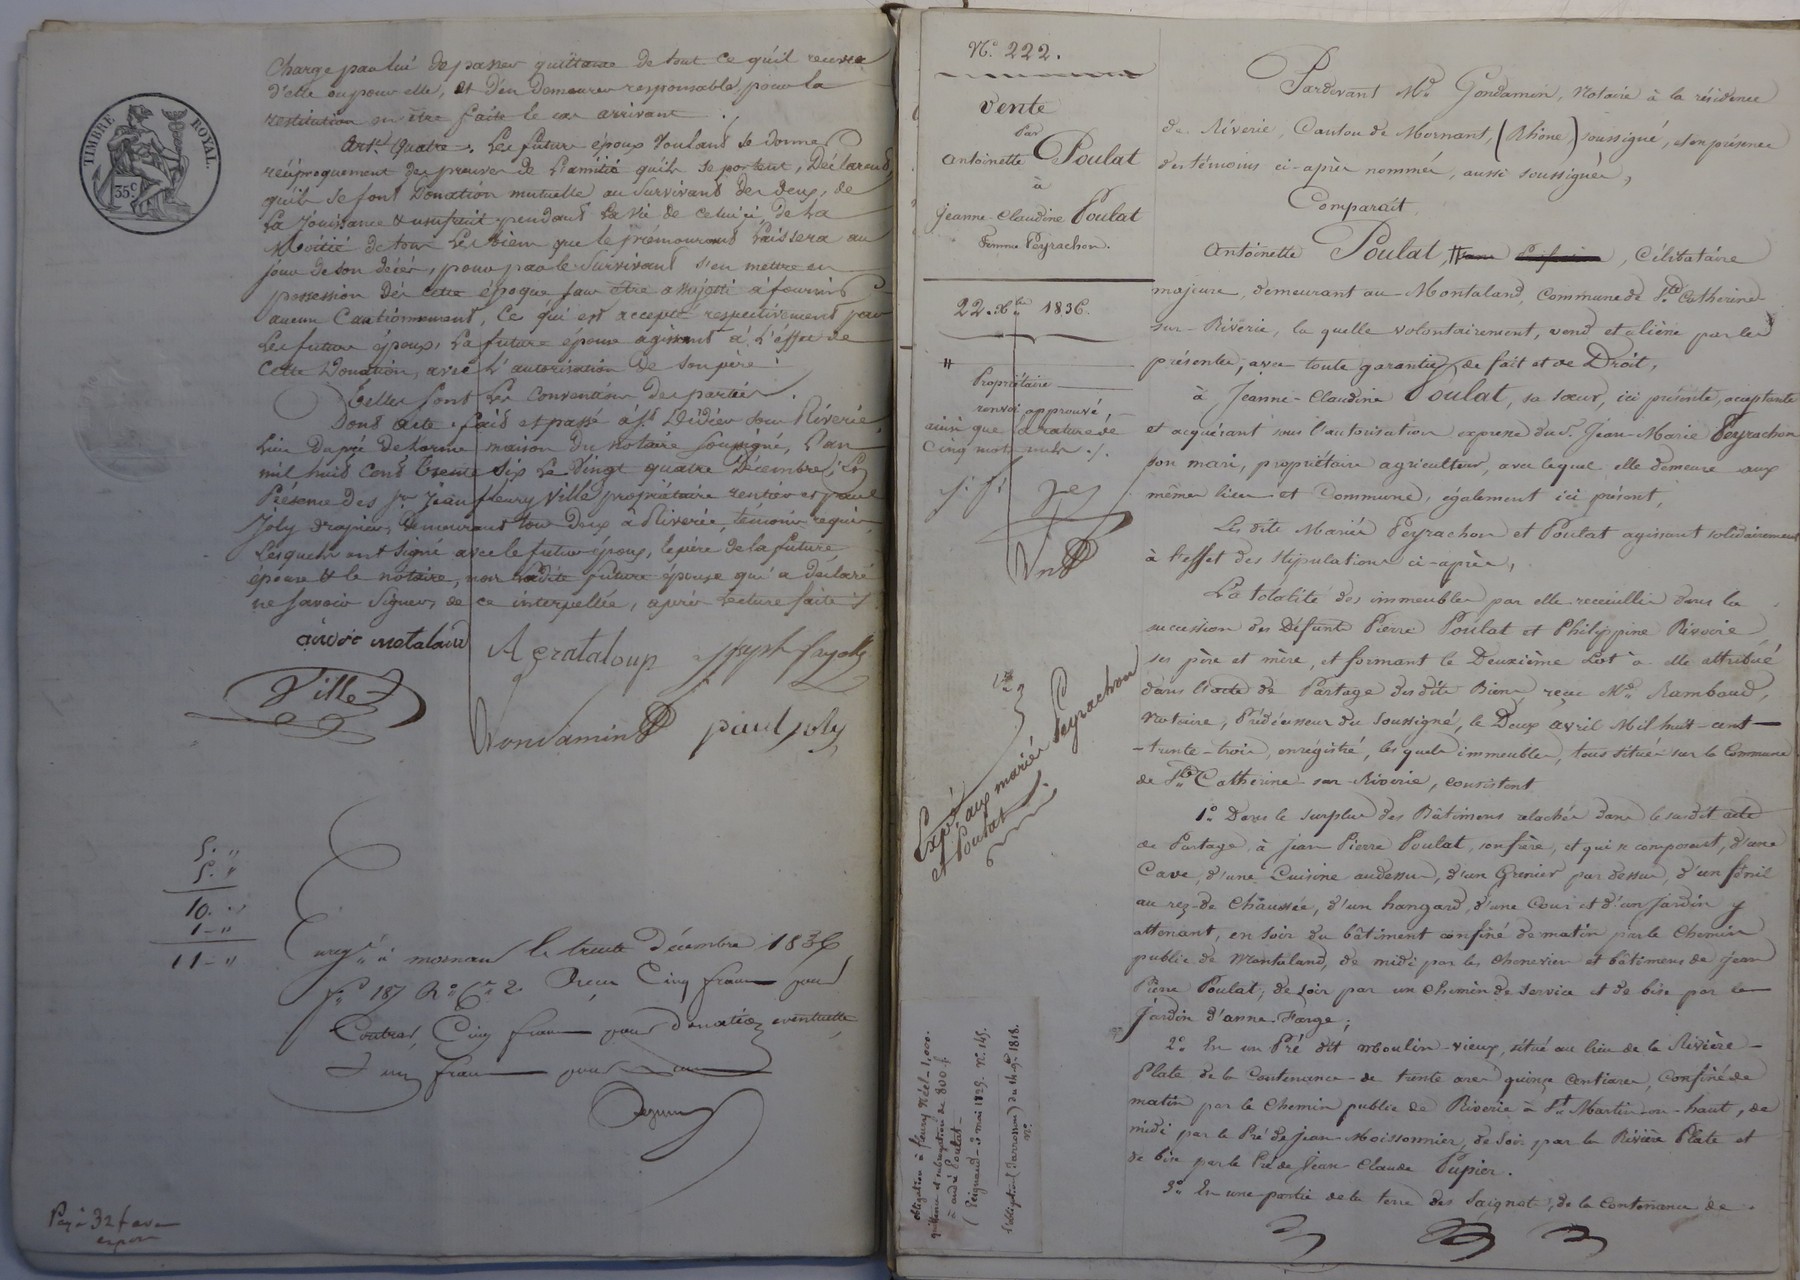 TIMBRE ROYAL.
35c
charge par lui de passer quittance de tout ce qu'il recevra
d'elle ou pour elle, et d'en demeurer responsable pour la
restitution en être faite le cas arrivant.
Art. Quatre. Les futurs époux voulant se donner
réciproquement des preuves de l'amitié qu'ils se portent, Déclarent
qu'ils se font Donation mutuelle au Survivant des deux, de
La Jouissance & usufruit pendant la vie de celui ci, de La
Moitié de tous les biens que le prémourant laissera au
jour de son décès, pour par le Survivant s'en mettre en
possession dès cette époque sans être assujetti à fournir
aucun Cautionnement, Ce qui est accepté respectivement par
Les futurs époux, La future épouse agissant à L'effet de
Cette Donation, avec L'autorisation de son père.
Telles sont Les Conventions des parties.
Dont acte, fait et passé à St Didier sous Riverie,
Lieu du pré de Lorme, maison du notaire soussigné, L'an
mil huit cent trente six Le vingt quatre Décembre, En
Présence des Srs Jean fleury Ville propriétaire rentier et paul
Joly drapier, Demeurant tous deux à Riverie, témoins requis
Lesquels ont signé avec le futur époux, le père de la future
épouse & le notaire, non Ladite future épouse qui a déclaré
ne savoir signer, de ce interpellée, après Lecture faite
A grataloup
Ville
Gondamin paul joly
5. "
5. "
10. "
1 - "
11 - "
Enregé à mornant le trente Décembre 1836
fo 187 Ro Ce 2. Reçu Cinq francs pour
Contrat, Cinq francs pour donation éventuelle,
& un franc pour
Payé 32 f avec
No 222.
Vente
Par
Antoinette Poulat
à
Jeanne-Claudine Poulat
Femme Peyrachon.
22. Xbre 1836.
"
Propriétaire
renvoi approuvé,
ainsi que la rature de
Cinq mots nuls.
Expé aux mariés Peyrachon
et Poulat
obligation à fleury Néel - 1,000.
quittance et subrogation de 800 f.
à andré Poulat
(Peignaud - 3 mai 1829. No 145.
No
Pardevant Me Gondamin, Notaire à la résidence
de Riverie, Canton de Mornant, (Rhône) soussigné, et en présence
des témoins ci-après nommés, aussi soussignés,
Comparait
Antoinette Poulat, Célibataire
majeure, demeurant au Montaland, Commune de Ste Catherine
sur-Riverie, la quelle volontairement, vend et aliène par les
présentes, avec toute garantie de fait et de Droit,
à Jeanne-Claudine Poulat, sa sœur, ici présente, acceptante
et acquérant sous l'autorisation expresse du Sr. Jean-Marie Peyrachon
son mari, propriétaire agriculteur, avec lequel elle demeure aux
mêmes lieu et Commune, également ici présent,
Les dits Mariés Peyrachon et Poulat agissant solidairement
à l'effet des stipulations ci-après,
La totalité des immeubles par elle receuillis dans la
succession des Défunts Pierre Poulat et Philippine Rivoire
ses père et mère, et formant le Deuxième Lot à elle attribué
dans l'acte de Partage desdits Biens reçu Me Rambaud,
Notaire, Prédécesseur du soussigné, le Deux avril Mil huit-cent-
-trente-trois, enrégistré, les quels immeubles, tous situés sur la Commune
de Ste Catherine-sur-Riverie, consistent
1o Dans le surplus des Bâtimens relachés dans le susdit acte
de Partage, à Jean Pierre Poulat, son frère, et qui se composent, d'une
Cave, d'une Cuisine audessus, d'un Grenier par dessus, d'un fénil
au rez-de Chaussée, d'un hangard, d'une Cour et d'un Jardin y
attenant, en soir du bâtiment confiné de matin par le Chemin
public de Montaland, de midi par les Chenevier et bâtimens de Jean
Pierre Poulat, de soir par un Chemin de service et de bise par le
Jardin d'anne Farge;
2o En un Pré dit Moulin-vieux, situé au lieu de la Rivière-
Plate de la Contenance de trente ares quinze Centiares, Confiné de
matin par le Chemin public de Riverie à St Martin-en-haut, de
midi par le Pré de Jean Moissonnier, de soir par la Rivière Plate et
de bise par le Pré de Jean-Claude Pupier.
3o En une partie de la terre des Saignat, de la Contenance de